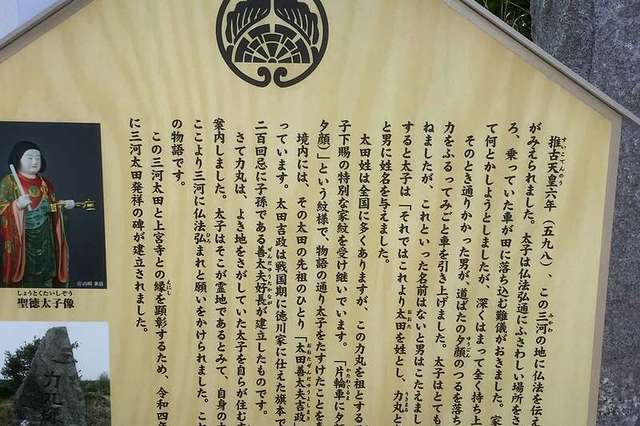 推古天皇六年（五九八）、この三河の地に仏法を伝え
がみえられました。太子は仏法弘通にふさわしい場所をさ
ろ、乗っていた車が田に落ち込む難儀がおきました。家
て何とかしようとしましたが、深くはまって全く持ち上
そのとき通りかかった男が、道ばたの夕顔のつるを落ち
力をふるってみごと車を引き上げました。太子はとても
ねましたが、これといった名前はないと男はこたえまし
すると太子は「それではこれより太田を姓とし、力丸と
と男に姓名を与えました。
太田姓は全国に多くありますが、この力丸を祖とする
子下賜の特別な家紋を受け継いでいます。「片輪車に夕
夕顔）」という紋様で、物語の通り太子をたすけたことを
境内には、その太田の先祖のひとり「太田善太夫吉政
っています。太田吉政は戦国期に徳川家に仕えた旗本で
二百回忌に子孫である善太夫好長が建立したものです。
さて力丸は、よき地をさがしていた太子を自らが住む
案内しました。太子はそこが霊地であるとみて、自身の
ここより三河に仏法弘まれと願いをかけられました。こ
の物語です。
この三河太田と上宮寺との縁を顕彰するため、令和四年
に三河太田発祥の碑が建立されました。
しょうとくたいしぞう
聖徳太子像